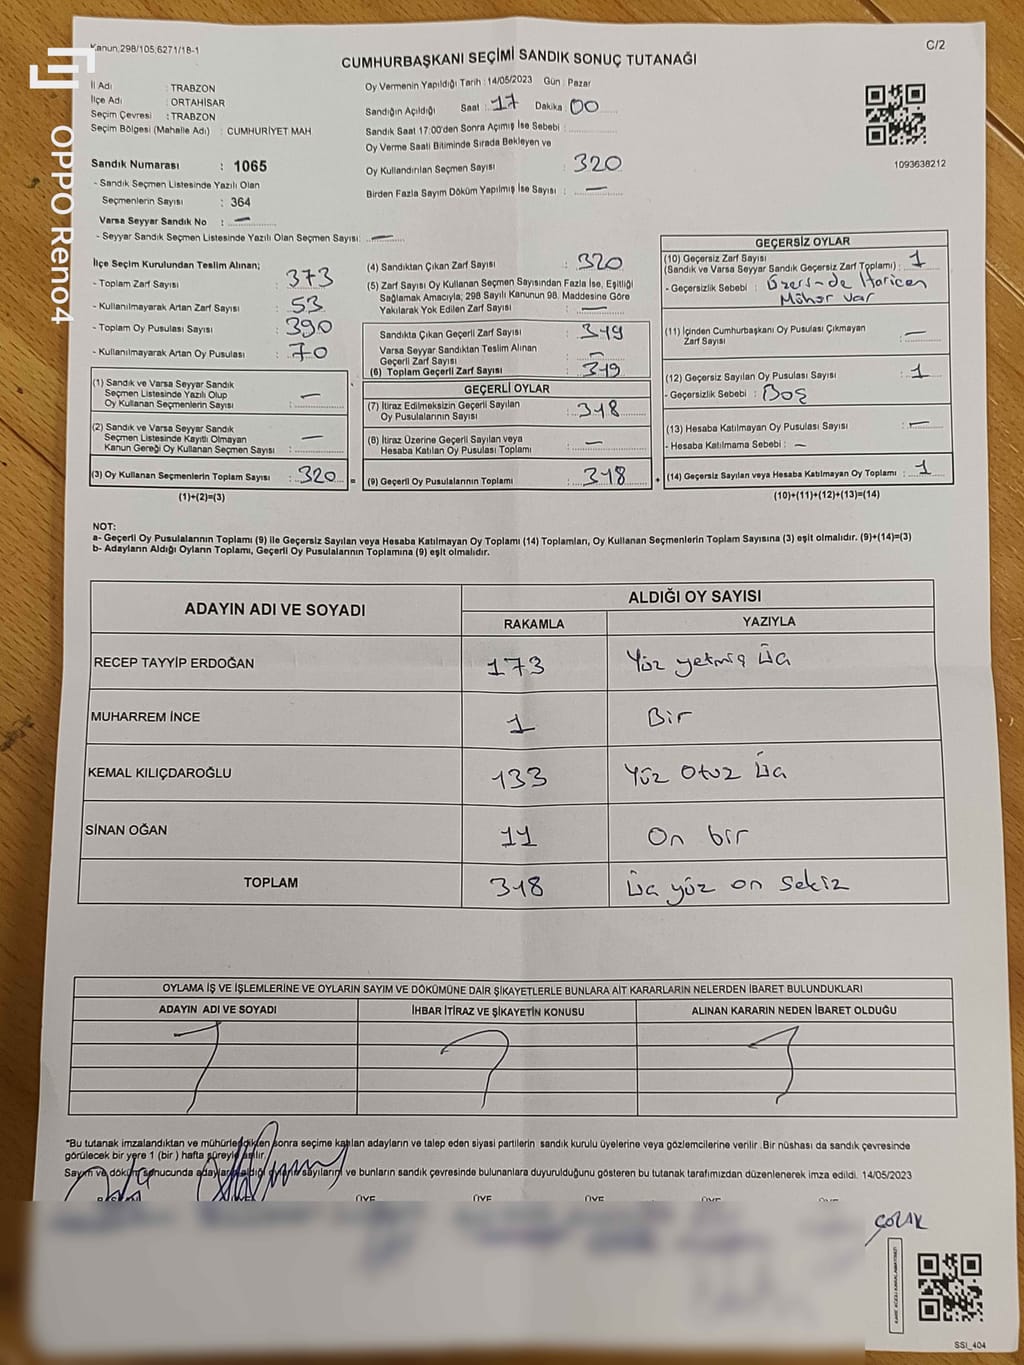 Kanun,298/105,6271/18-1
C/2
CUMHURBAŞKANI SEÇİMİ SANDIK SONUÇ TUTANAĞI
İl Adı : TRABZON
İlçe Adı : ORTAHİSAR
Seçim Çevresi : TRABZON
Seçim Bölgesi (Mahalle Adı) : CUMHURİYET MAH
Sandık Numarası : 1065
- Sandık Seçmen Listesinde Yazılı Olan
Seçmenlerin Sayısı : 364
Varsa Seyyar Sandık No : —
- Seyyar Sandık Seçmen Listesinde Yazılı Olan Seçmen Sayısı: —
Oy Vermenin Yapıldığı Tarih : 14/05/2023 Gün : Pazar
Sandığın Açıldığı Saat : 17 Dakika 00
Sandık Saat 17:00'den Sonra Açımış İse Sebebi :
Oy Verme Saati Bitiminde Sırada Bekleyen ve
Oy Kullandırılan Seçmen Sayısı 320
Birden Fazla Sayım Döküm Yapılmış İse Sayısı : —
1093638212
İlçe Seçim Kurulundan Teslim Alınan;
- Toplam Zarf Sayısı : 373
- Kullanılmayarak Artan Zarf Sayısı : 53
- Toplam Oy Pusulası Sayısı : 390
- Kullanılmayarak Artan Oy Pusulası : 70
(1) Sandık ve Varsa Seyyar Sandık
Seçmen Listesinde Yazılı Olup
Oy Kullanan Seçmenlerin Sayısı : —
(2) Sandık ve Varsa Seyyar Sandık
Seçmen Listesinde Kayıtlı Olmayan
Kanun Gereği Oy Kullanan Seçmen Sayısı : —
(3) Oy Kullanan Seçmenlerin Toplam Sayısı : 320 =
(1)+(2)=(3)
(4) Sandıktan Çıkan Zarf Sayısı : 320
(5) Zarf Sayısı Oy Kullanan Seçmen Sayısından Fazla İse, Eşitliği
Sağlamak Amacıyla, 298 Sayılı Kanunun 98. Maddesine Göre
Yakılarak Yok Edilen Zarf Sayısı : —
Sandıkta Çıkan Geçerli Zarf Sayısı : 319
Varsa Seyyar Sandıktan Teslim Alınan
Geçerli Zarf Sayısı : —
(6) Toplam Geçerli Zarf Sayısı : 319
GEÇERLİ OYLAR
(7) İtiraz Edilmeksizin Geçerli Sayılan
Oy Pusulalarının Sayısı : 318
(8) İtiraz Üzerine Geçerli Sayılan veya
Hesaba Katılan Oy Pusulası Toplamı : —
(9) Geçerli Oy Pusulalarının Toplamı : 318 +
GEÇERSİZ OYLAR
(10) Geçersiz Zarf Sayısı
(Sandık ve Varsa Seyyar Sandık Geçersiz Zarf Toplamı) : 1
- Geçersizlik Sebebi : Üzerinde Haricen
Mühür var
(11) İçinden Cumhurbaşkanı Oy Pusulası Çıkmayan
Zarf Sayısı : —
(12) Geçersiz Sayılan Oy Pusulası Sayısı : 1
- Geçersizlik Sebebi : Boş
(13) Hesaba Katılmayan Oy Pusulası Sayısı : —
- Hesaba Katılmama Sebebi : —
(14) Geçersiz Sayılan veya Hesaba Katılmayan Oy Toplamı : 1
(10)+(11)+(12)+(13)=(14)
NOT:
a- Geçerli Oy Pusulalarının Toplamı (9) ile Geçersiz Sayılan veya Hesaba Katılmayan Oy Toplamı (14) Toplamları, Oy Kullanan Seçmenlerin Toplam Sayısına (3) eşit olmalıdır. (9)+(14)=(3)
b- Adayların Aldığı Oyların Toplamı, Geçerli Oy Pusulalarının Toplamına (9) eşit olmalıdır.
ADAYIN ADI VE SOYADI
ALDIĞI OY SAYISI
RAKAMLA YAZIYLA
RECEP TAYYİP ERDOĞAN 173 Yüz yetmiş Üç
MUHARREM İNCE 1 Bir
KEMAL KILIÇDAROĞLU 133 Yüz Otuz Üç
SİNAN OĞAN 11 On bir
TOPLAM 318 Üç yüz on sekiz
OYLAMA İŞ VE İŞLEMLERİNE VE OYLARIN SAYIM VE DÖKÜMÜNE DAİR ŞİKAYETLERLE BUNLARA AİT KARARLARIN NELERDEN İBARET BULUNDUKLARI
ADAYIN ADI VE SOYADI İHBAR İTİRAZ VE ŞİKAYETİN KONUSU ALINAN KARARIN NEDEN İBARET OLDUĞU
"Bu tutanak imzalandıktan ve mühürlendikten sonra seçime katılan adayların ve talep eden siyasi partilerin sandık kurulu üyelerine veya gözlemcilerine verilir .Bir nüshası da sandık çevresinde
görülecek bir yere 1 (bir ) hafta süreyle asılır.
Sayım ve döküm sonucunda adayların aldığı oyların sayılarını ve bunların sandık çevresinde bulunanlara duyurulduğunu gösteren bu tutanak tarafımızdan düzenlenerek imza edildi. 14/05/2023
ÜYE ÜYE ÜYE ÜYE
ÇOLAK
SSİ_404
OPPO Reno4